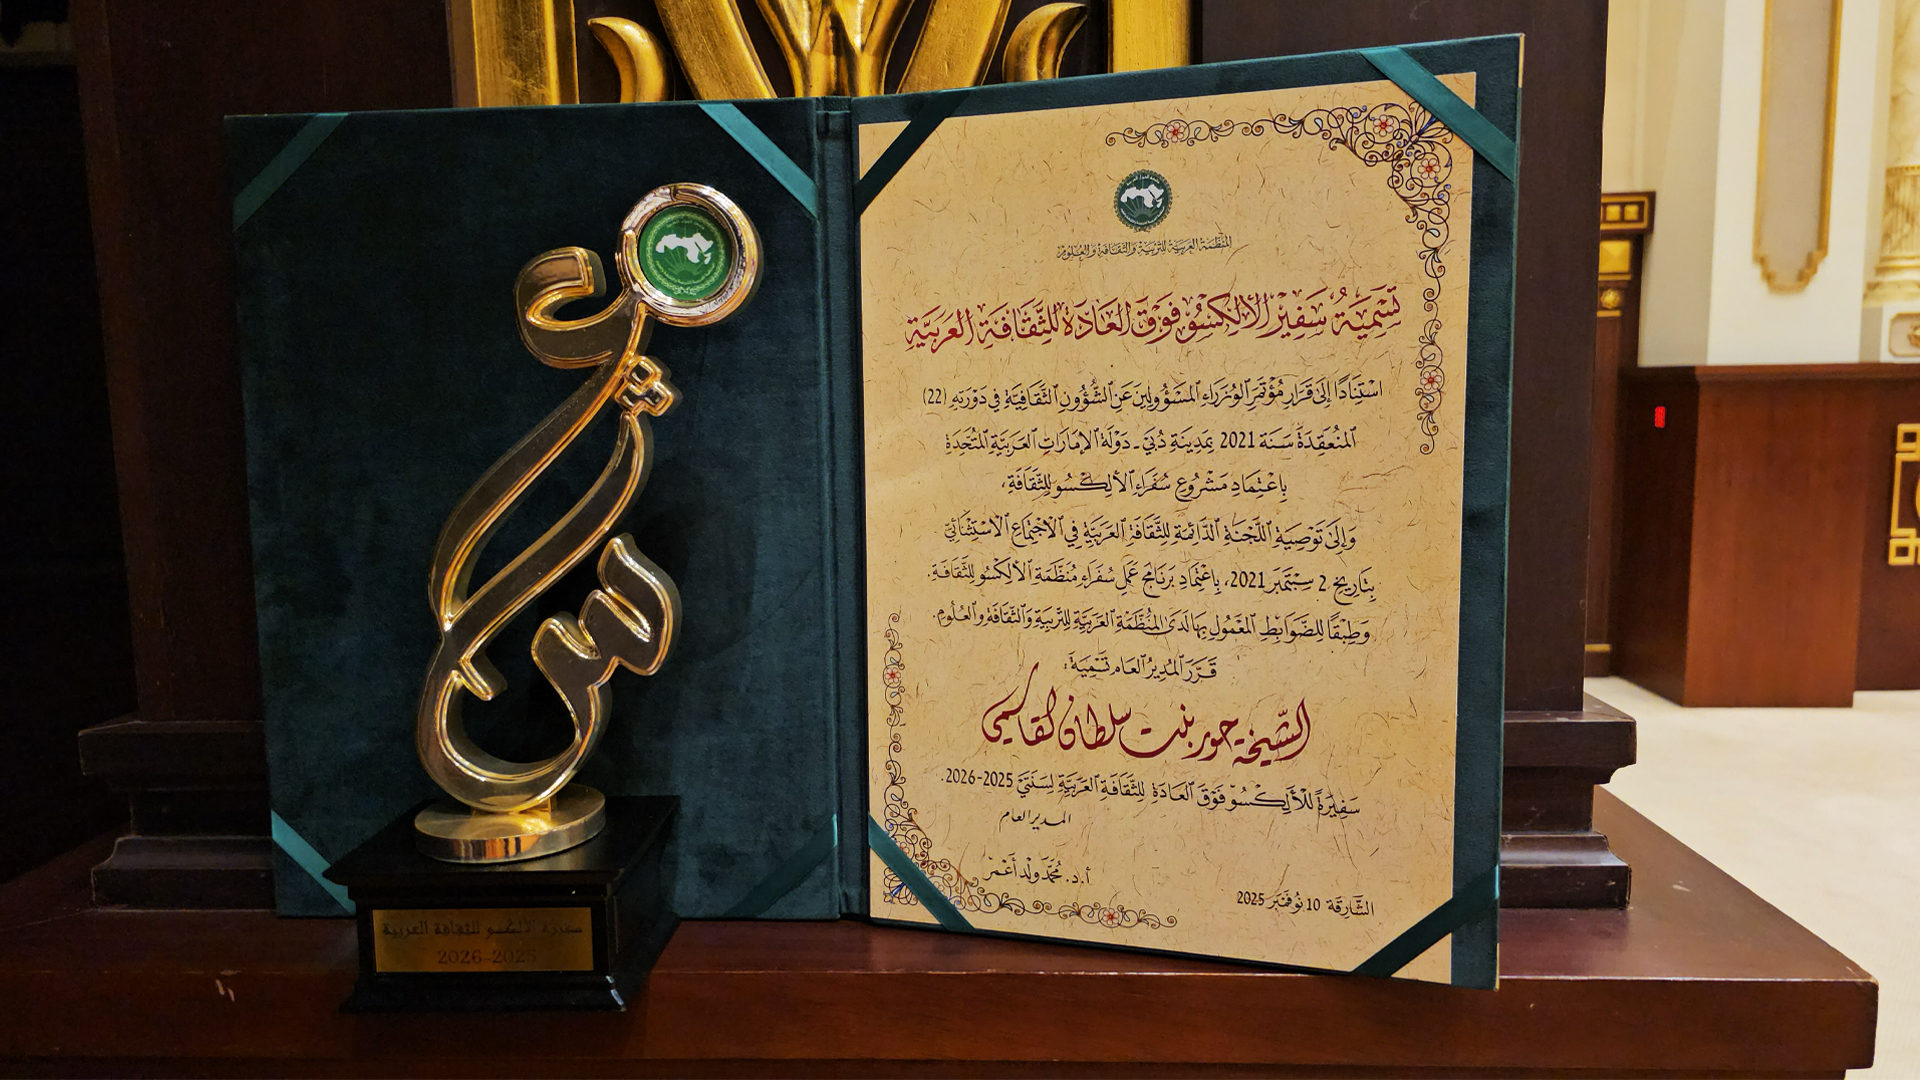 المنظمة العربية للتربية والثقافة والعلوم
تَسْمِيَةُ سَفِيْرِ الألكسُو فَوْقَ العَادَةِ للثَّقَافَةِ العَرَبِيَّةِ
اسْتِنَادًا إِلَى قَرَارِ مُؤْتَمَرِ الوُزَرَاءِ المَسْؤُولِينَ عَنِ الشُّؤُونِ الثَّقَافِيَّةِ فِي دَوْرَتِهِ (22)
المُنْعَقِدَةُ سَنَة 2021 بِمَدِينَةِ دُبَيّ - دَوْلَة الإِمَارَاتِ العَرَبِيَّةِ المُتَّحِدَةِ
بِاعْتِمَادِ مَشْرُوعِ سُفَرَاءِ الأَلِكْسُو لِلثَّقَافَةِ،
وَإِلَى تَوْصِيَةِ اللَّجْنَةِ الدَّائِمَةِ لِلثَّقَافَةِ العَرَبِيَّةِ فِي الاجْتِمَاعِ الاسْتِثْنَائِيِّ
بِتَارِيخِ 2 سِبْتَمْبَر 2021، بِاعْتِمَادِ بَرْنَامَجِ عَمَلِ سُفَرَاءِ مُنَظَّمَةِ الأَلِكْسُو لِلثَّقَافَةِ.
وَطِبْقًا لِلضَّوَابِطِ المَعْمُولِ بِهَا لَدَى المُنَظَّمَةِ العَرَبِيَّةِ لِلتَّرْبِيَةِ وَالثَّقَافَةِ وَالعُلُومِ.
قَرَّرَ المُدِيرُ العَام تَسْمِيَةَ:
الشّيخة حور بنت سلطان القاسمي
سَفِيرَةً لِلأَلِكْسُو فَوْقَ العَادَةِ لِلثَّقَافَةِ العَرَبِيَّةِ لِسَنَتَيْ 2025-2026.
المدير العام
أ.د. مُحَمَّد وِلْد أَعْمَر
الشَّارِقَة 10 نُوفَمْبَر 2025
سفيرة الألكسو للثقافة العربية
2026-2025